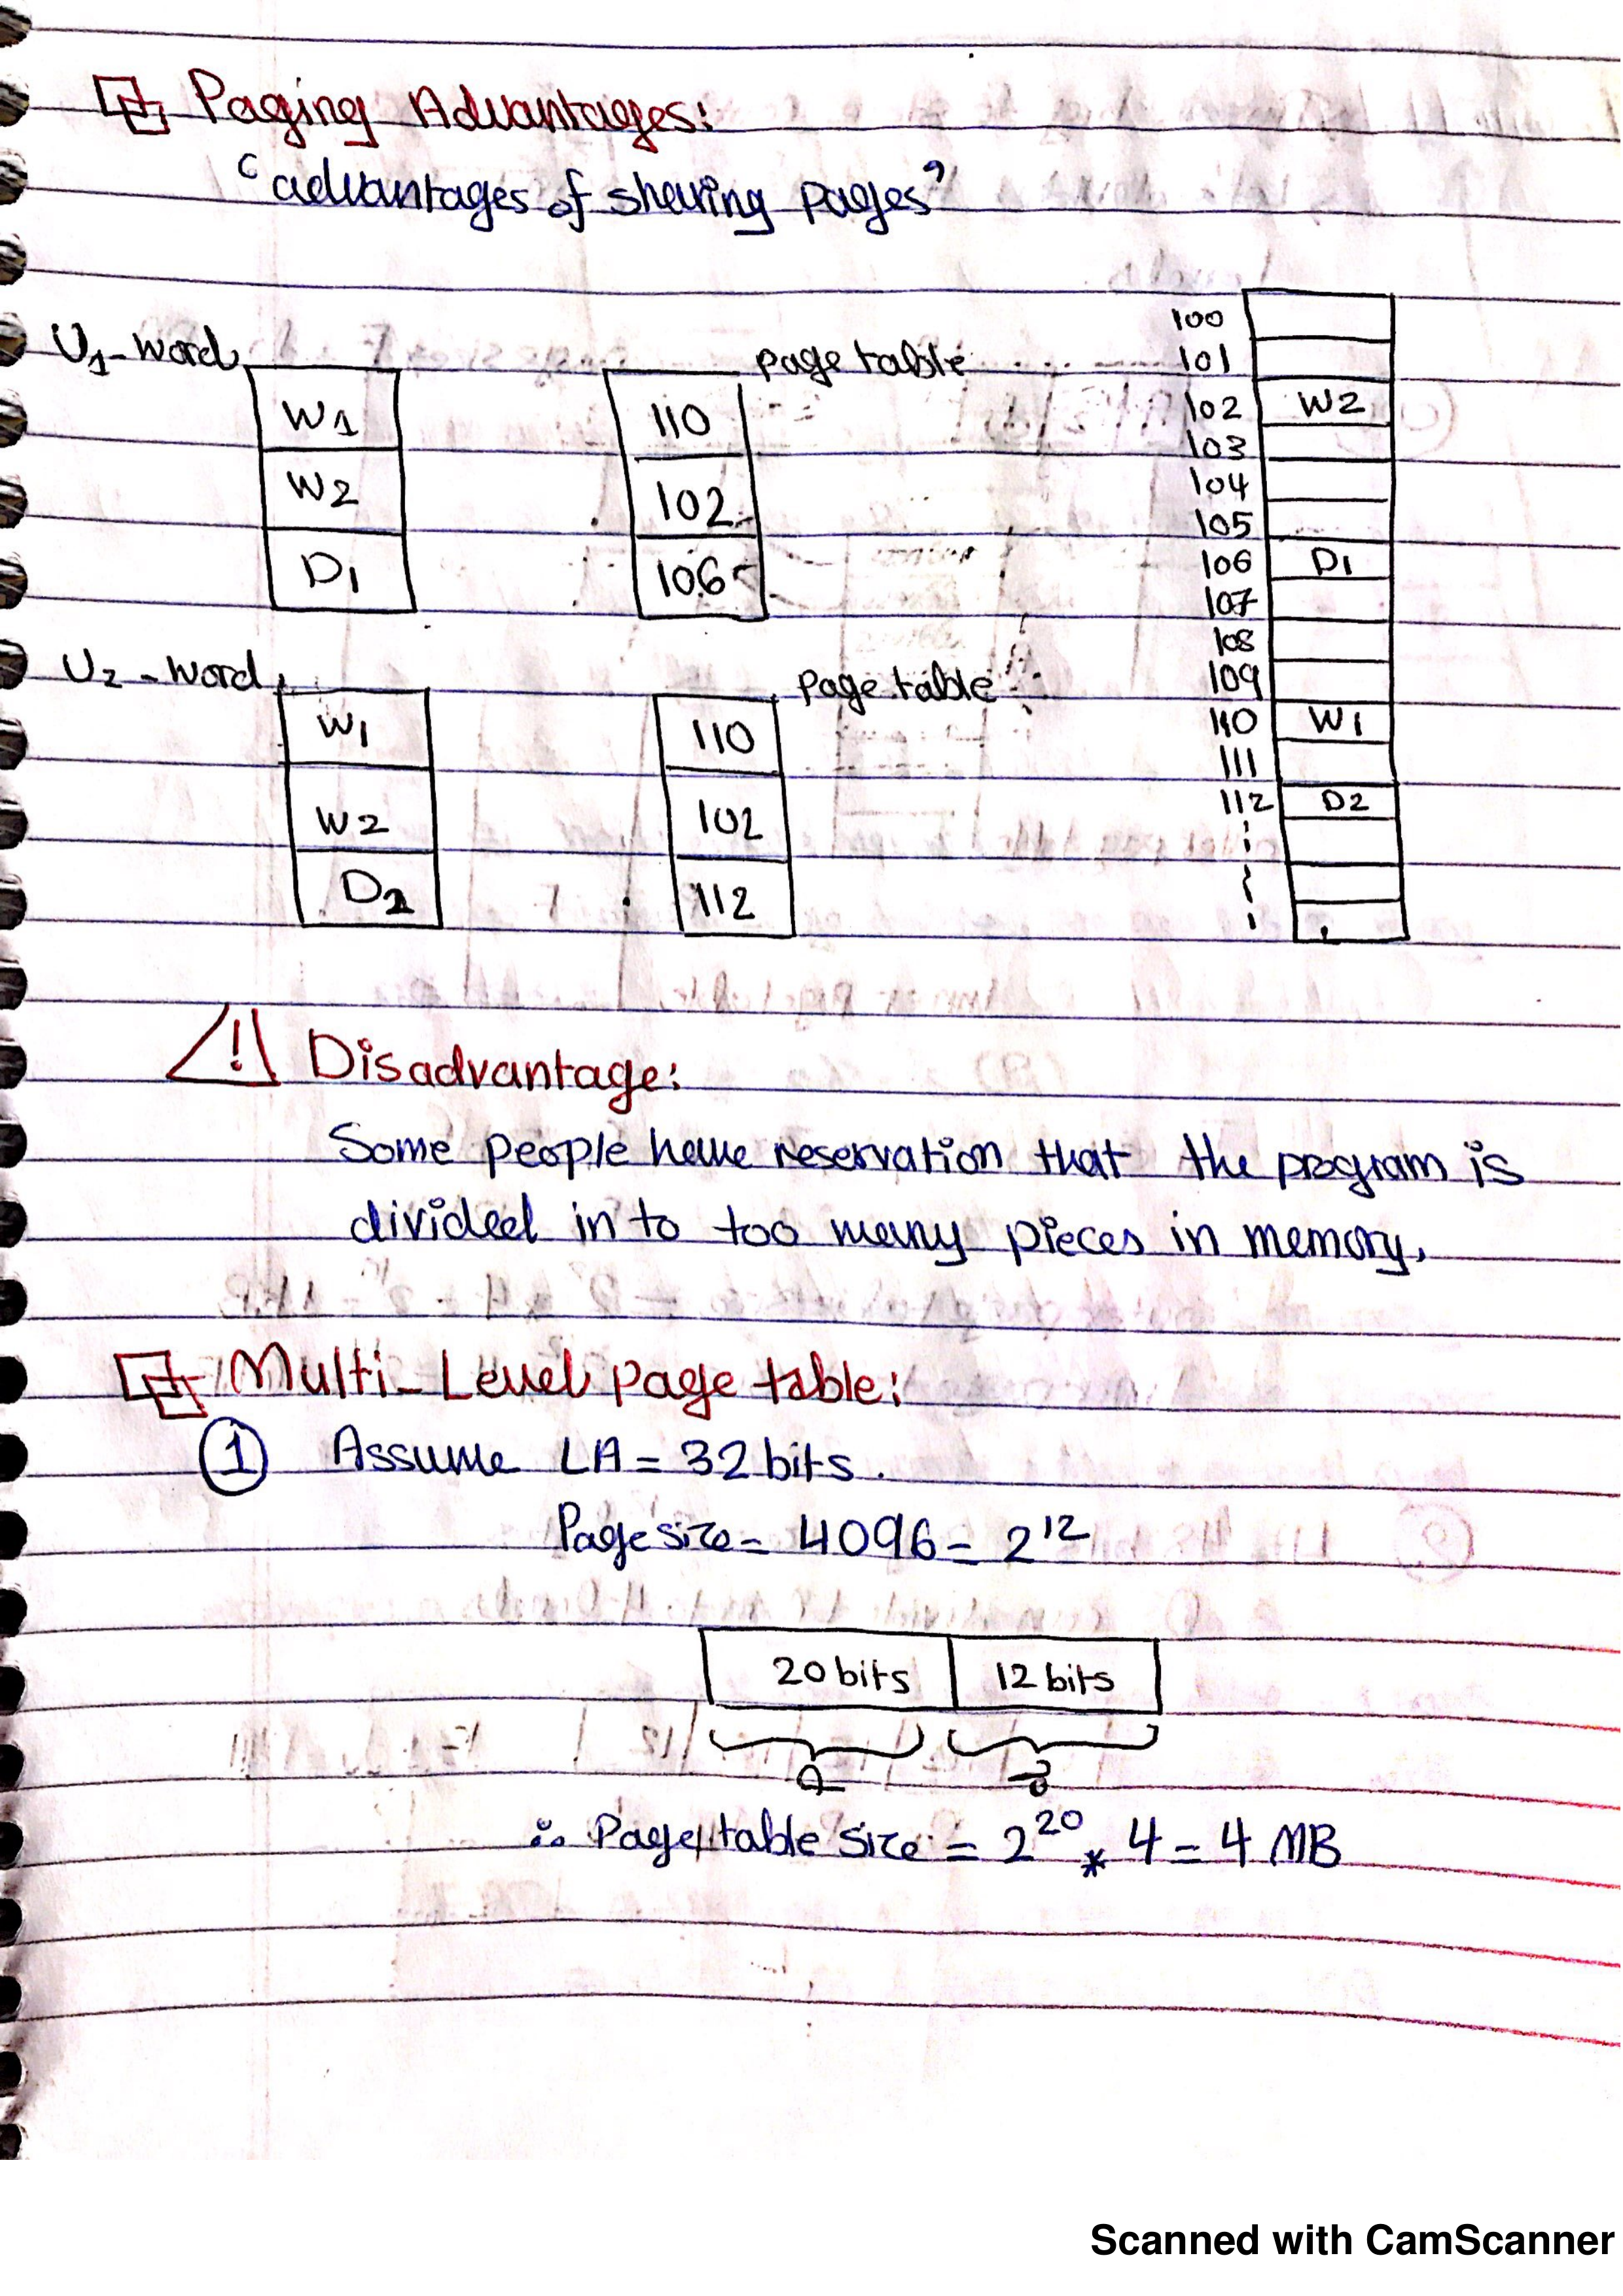 Paging Advantages:
"advantages of sharing pages"
U1-word
W1
W2
D1
page table
110
102
106
U2-word
W1
W2
D2
page table
110
102
112
100
101
102 W2
103
104
105
106 D1
107
108
109
110 W1
111
112 D2
! Disadvantage:
Some people have reservation that the program is
divided in to too many pieces in memory.
Multi-Level page table:
1 Assume LA = 32 bits.
Page size = 4096 = 2^12
20 bits 12 bits
∴ Page table size = 2^20 * 4 = 4 MB
Scanned with CamScanner